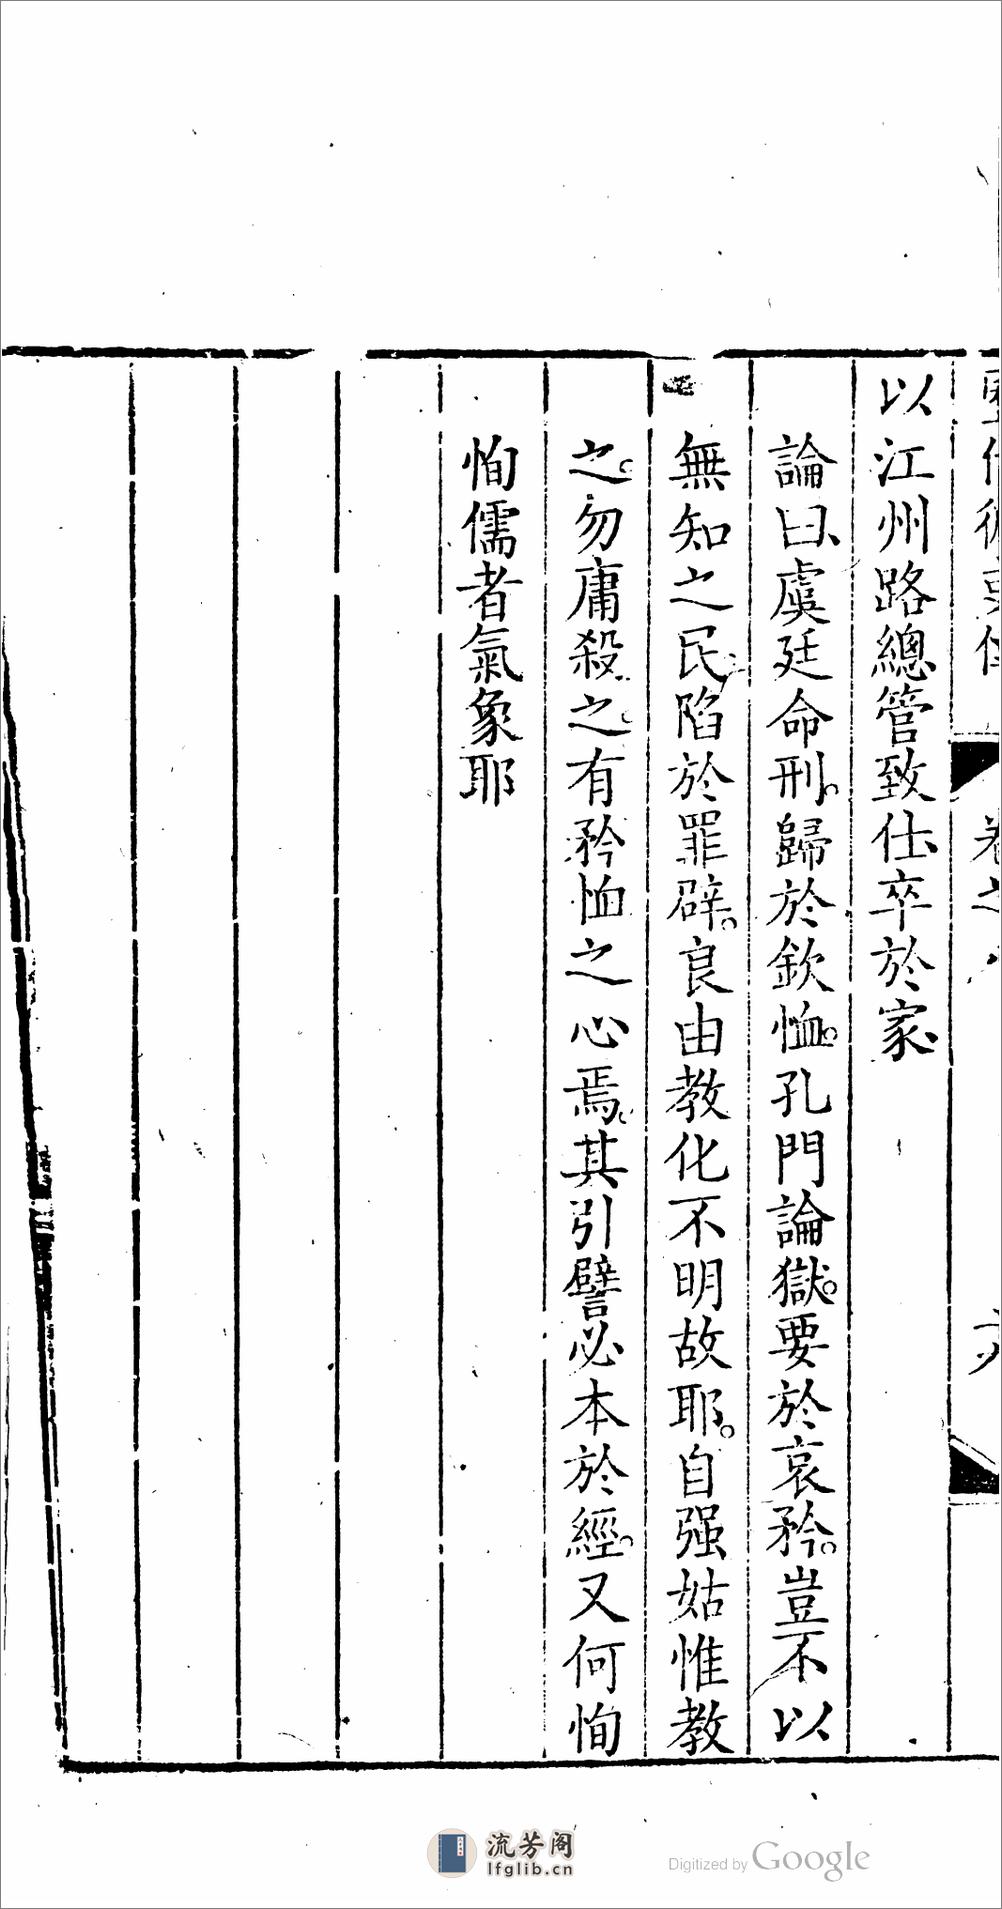 以江州路總管致仕卒於家
論曰虞廷命刑歸於欽恤孔門論獄要於哀矜豈不以
無知之民陷於罪辟良由教化不明故耶自强姑惟教
之勿庸殺之有矜恤之心焉其引譬必本於經又何恂
恂儒者氣象耶
流芳阁
lfglib.cn
Digitized by Google